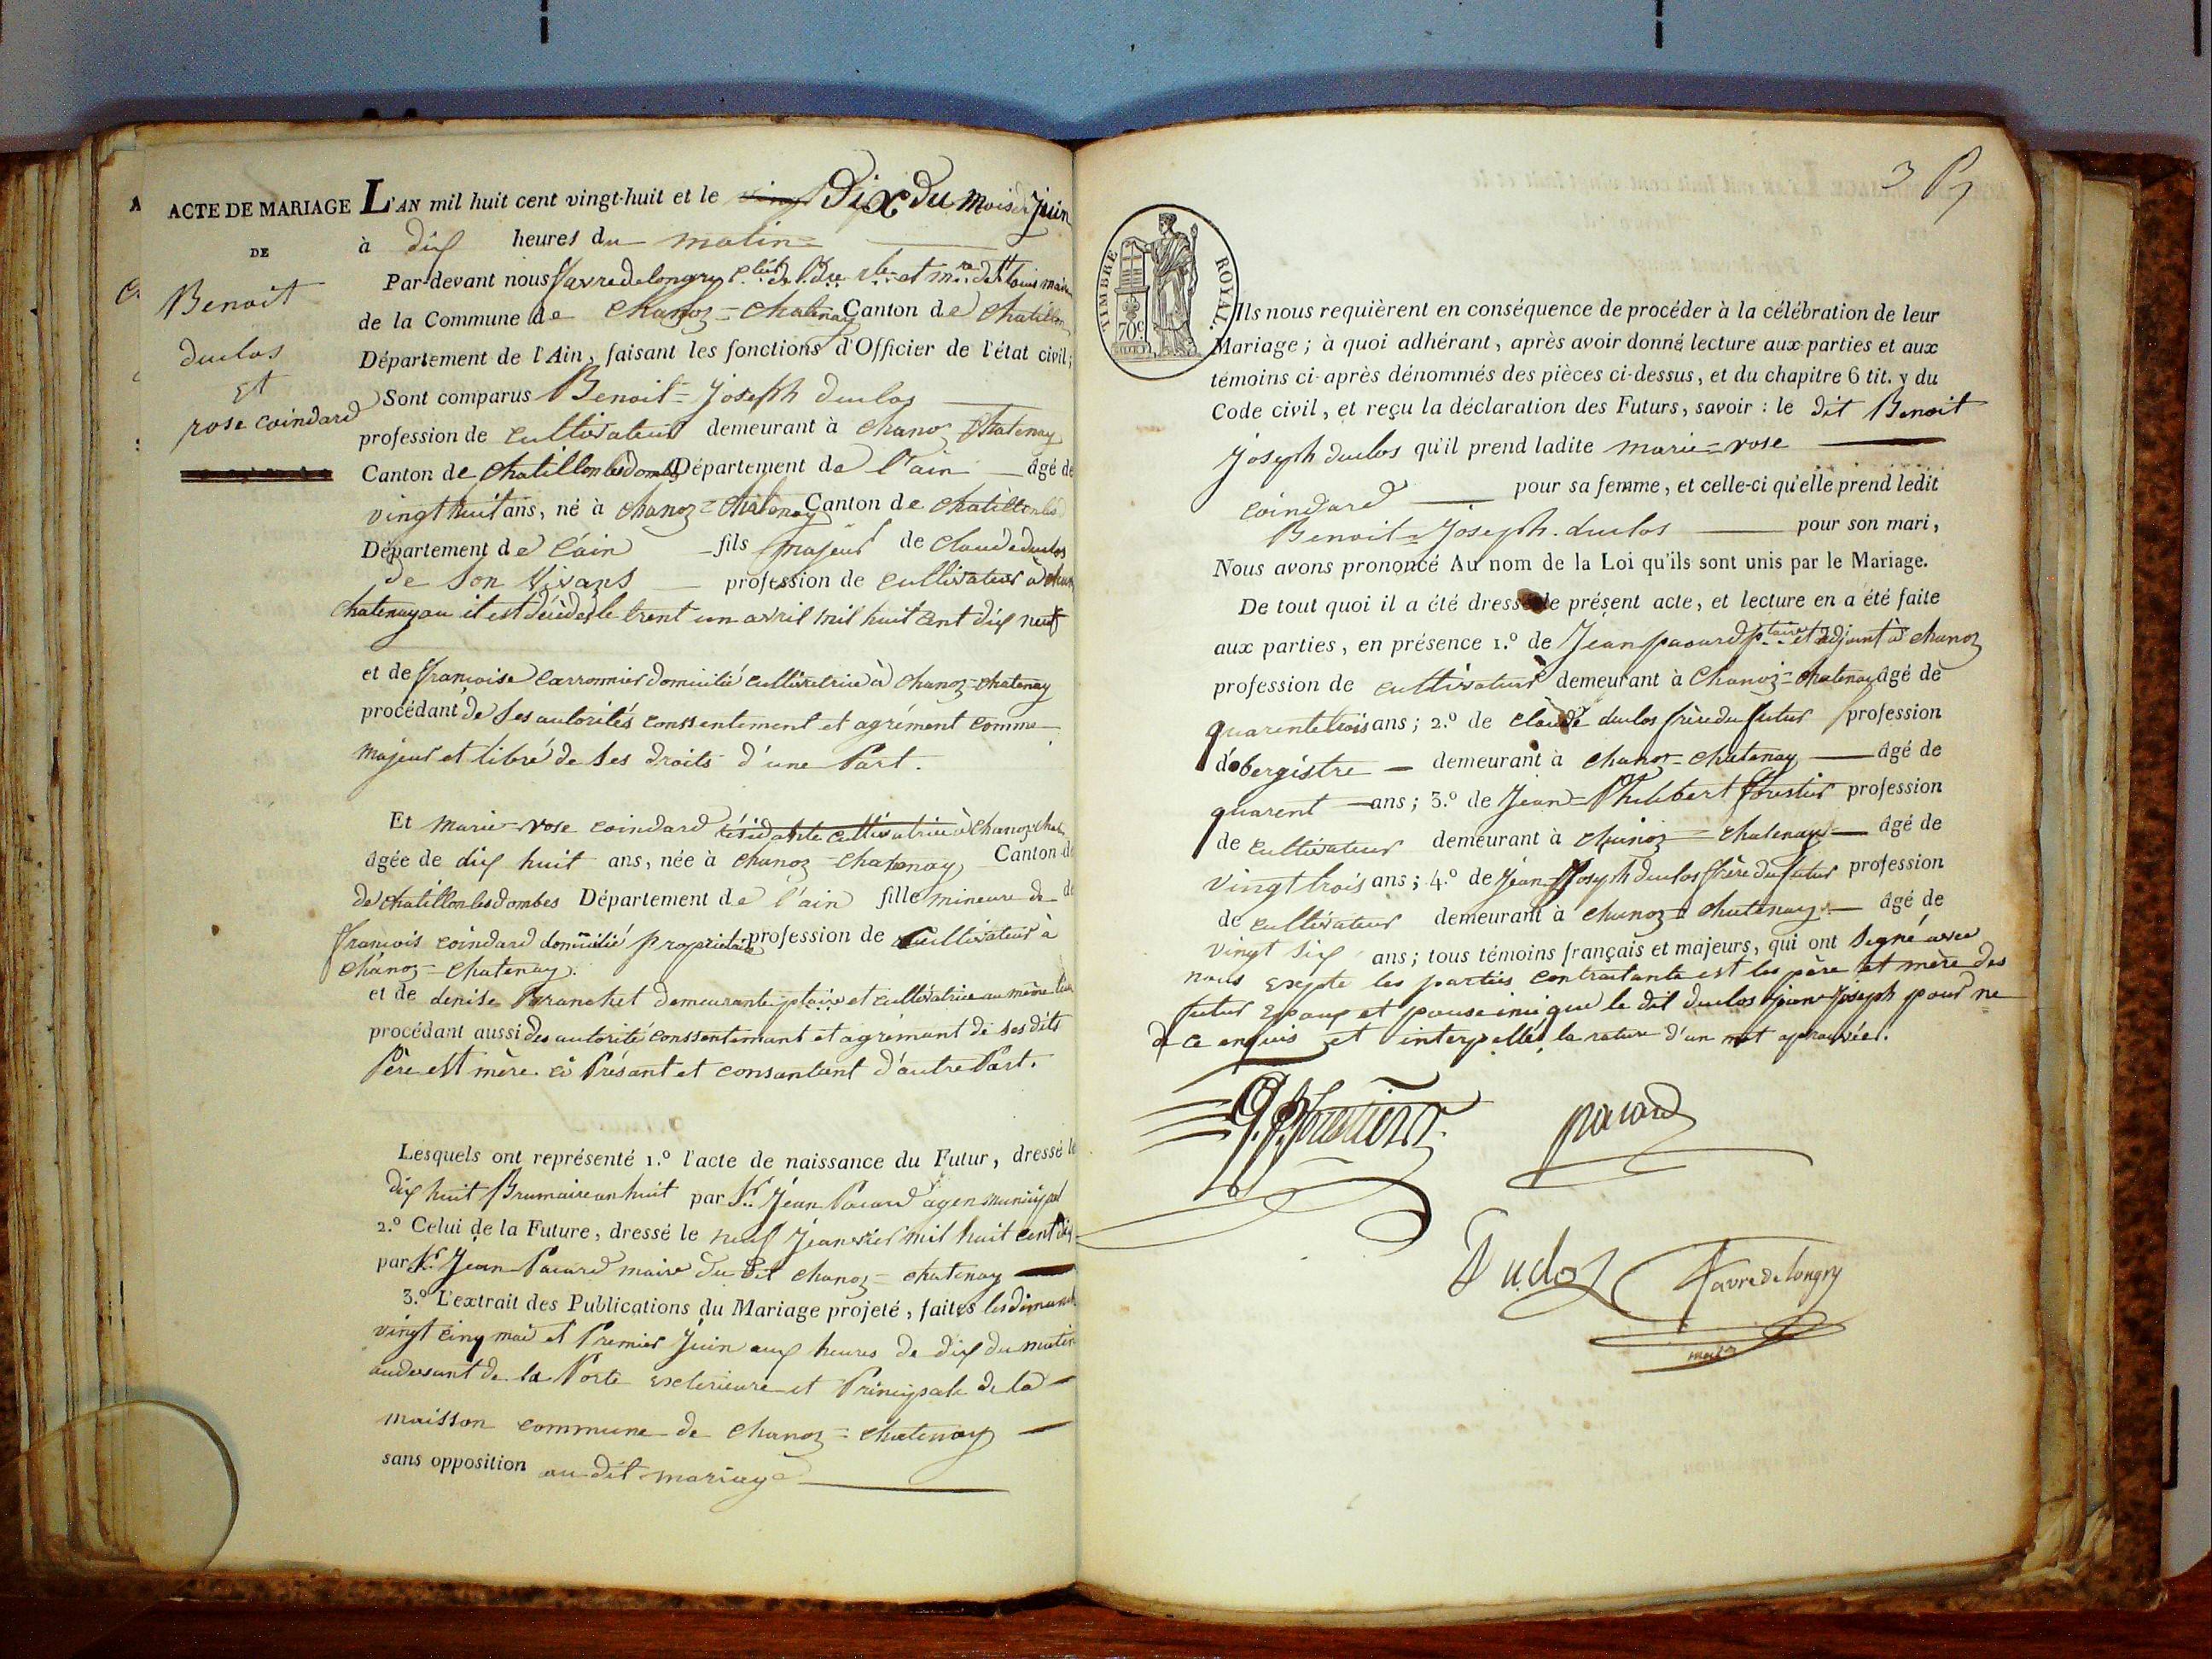 ACTE DE MARIAGE
DE
Benoit
duclos
et
rose coindard
L'AN mil huit cent vingt-huit et le Dix du mois de juin
à dix heures du matin
Par-devant nous favre de longry maire
de la Commune de Chanoz = Chatenay Canton de Chatillon
Département de l'Ain, faisant les fonctions d'Officier de l'état civil;
Sont comparus Benoit = Joseph duclos
profession de cultivateur demeurant à Chanoz Chatenay
Canton de Chatillon les dombes Département de l'ain âgé de
vingt huit ans, né à Chanoz = Chatenay Canton de Chatillon les
Département de l'ain fils majeur de Claude duclos
de son vivans profession de cultivateur à
chatenay ou il est décédés le trent un avril mil huit cent dix neuf
et de françoise Carronnier domicilié cultivatrice à chanoz-chatenay
procédant de ses autorités conssentement et agrément comme
majeur et libre de ses droits d'une Part.
Et marie-rose coindard résidante cultivatrice à Chanoz
âgée de dix huit ans, née à chanoz-chatenay Canton de
de chatillon les dombes Département de l'ain fille mineure de
françois coindard domicilié propriétaire profession de cultivateur à
chanoz = chatenay.
et de denise demeurante et cultivatrice au même lieu
procédant aussi des autorité conssentemant et agrémant de ses dits
Père est mère ci Présant et consantant d'autre Part.
Lesquels ont représenté 1.º l'acte de naissance du Futur, dressé le
dix huit Brumaire an huit par Sr. Jean Pacard agen municipal
2.º Celui de la Future, dressé le neuf Jeanvier mil huit cent dix
par Sr. Jean Pacard maire du dit chanoz = chatenay
3.º L'extrait des Publications du Mariage projeté, faites les dimanch
vingt cinq mai et Premier Juin aux heures de dix du matin
audevant de la Porte exterieure et Principale de la
maisson commune de chanoz = chatenay
sans opposition au dit mariage
3
TIMBRE ROYAL.
70c
Ils nous requièrent en conséquence de procéder à la célébration de leur
Mariage; à quoi adhérant, après avoir donné lecture aux parties et aux
témoins ci-après dénommés des pièces ci-dessus, et du chapitre 6 tit. v du
Code civil, et reçu la déclaration des Futurs, savoir : le dit Benoit
Joseph duclos qu'il prend ladite marie = rose
coindard pour sa femme, et celle-ci qu'elle prend ledit
Benoit = Joseph. duclos pour son mari,
Nous avons prononcé Au nom de la Loi qu'ils sont unis par le Mariage.
De tout quoi il a été dressé le présent acte, et lecture en a été faite
aux parties, en présence 1.º de Jean pacard ptaire et adjoint à chanoz
profession de cultivateur demeurant à Chanoz = chatenay âgé de
quarente trois ans; 2.º de claude duclos frère du futur profession
d'obergistre demeurant à chanoz = chatenay âgé de
quarent ans; 3.º de Jean = Philibert forestier profession
de cultivateur demeurant à chanoz = chatenay âgé de
vingt trois ans; 4.º de Jean Joseph duclos frère du futur profession
de cultivateur demeurant à chanoz = chatenay âgé de
vingt six ans; tous témoins français et majeurs, qui ont signé avec
nous exepte les parties contractante est les père et mère des
futur epoux et pouse le dit duclos joseph pour ne
de ce enquis et interpellés la rature d'un mot aprouvéer.
pacard
Duclos
favre de longry